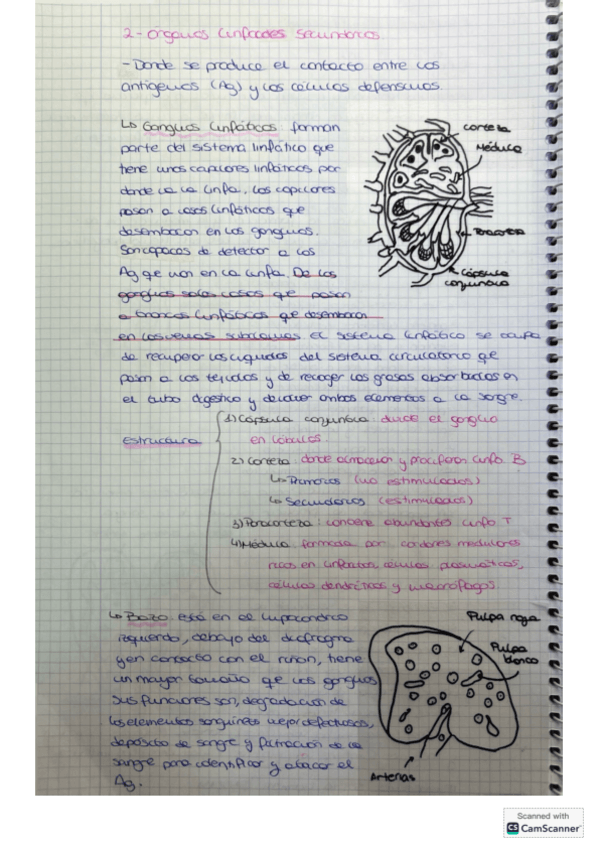 2- Órganos linfoides secundarios
- Donde se produce el contacto entre los
antígenos (Ag) y las células defensivas.
↳ Ganglios linfáticos: forman
parte del sistema linfático que
tiene unos capilares linfáticos por
donde va la linfa. Los capilares
pasan a vasos linfáticos que
desembocan en los ganglios.
Son capaces de detectar a los
Ag que van en la linfa. De los
ganglios salen vasos que pasan
a troncos linfáticos que desembocan
en las venas subclavias. El sistema linfático se ocupa
de recuperar los líquidos del sistema circulatorio que
pasan a los tejidos y de recoger las grasas absorbidas en
el tubo digestivo y devolver ambos elementos a la sangre.
corteza
Médula
Paracorteza
Cápsula
conjuntiva
estructura
1) Cápsula conjuntiva: divide el ganglio
en lóbulos.
2) Corteza: donde almacenan y proliferan linfo B
↳ Primarios (no estimulados)
↳ Secundarios (estimulados)
3) Paracorteza: contiene abundantes linfo T
4) Médula: formada por cordones medulares
ricos en linfocitos, células plasmáticas,
células dendríticas y macrófagos.
↳ Bazo: está en el hipocondrio
izquierdo, debajo del diafragma
y en contacto con el riñón, tiene
un mayor tamaño que los ganglios
sus funciones son, degradación de
los elementos sanguíneos viejos/defectuosos,
depósito de sangre y filtración de la
sangre para identificar y atacar el
Ag.
Pulpa roja
Pulpa
blanca
Arterias
Scanned with
CS CamScanner